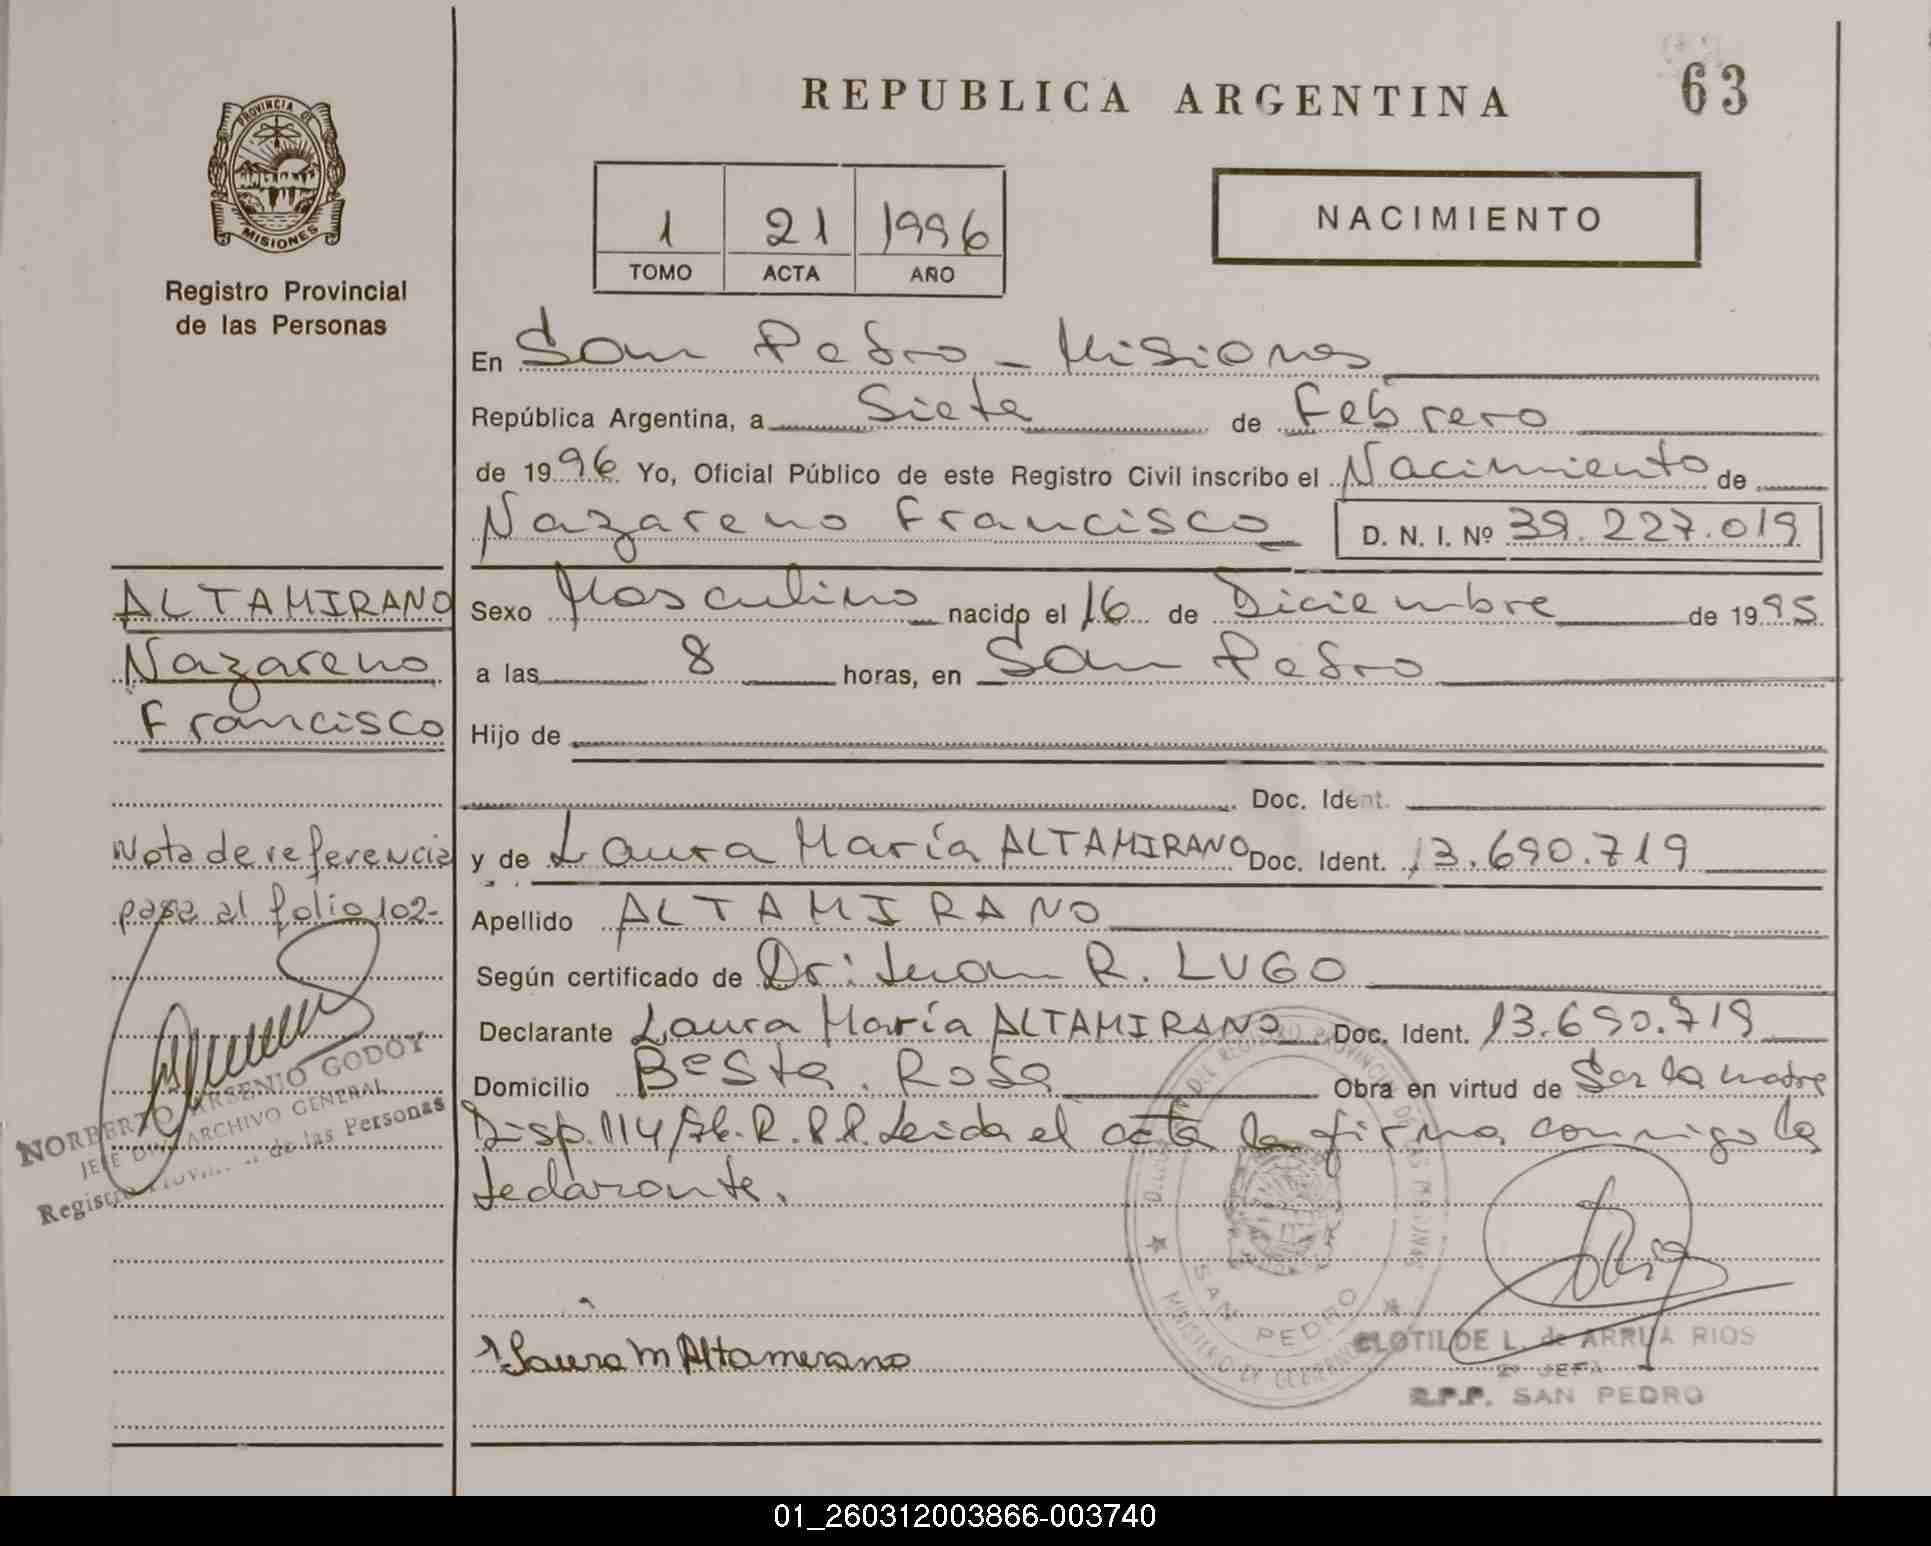 63
REPUBLICA ARGENTINA
PROVINCIA DE
MISIONES
Registro Provincial
de las Personas
1 21 1996
TOMO ACTA AÑO
NACIMIENTO
En San Pedro - Misiones
República Argentina, a Siete de Febrero
de 1996 Yo, Oficial Público de este Registro Civil inscribo el Nacimiento de
Nazareno Francisco D. N. I. Nº 39.227.019
ALTAMIRANO
Nazareno
Francisco
Sexo Masculino nacido el 16 de Diciembre de 1995
a las 8 horas, en San Pedro
Hijo de
Doc. Ident.
y de Laura María ALTAMIRANO Doc. Ident. 13.690.719
Nota de referencia
pasa al folio 102-
Apellido ALTAMIRANO
Según certificado de Dr: Juan R. LUGO
Declarante Laura María ALTAMIRANO Doc. Ident. 13.690.719
Domicilio Bº Sta. Rosa Obra en virtud de Ser la madre
Disp. 114/ R.P.P. Leida el acta la firma conmigo la
declarante.
NORBERTO ARSENIO GODOY
JEFE ARCHIVO GENERAL
Registro de las Personas
SAN PEDRO
Laura M Altamirano
CLOTILDE L. de ARRUA RIOS
2ª JEFA
R.P.P. SAN PEDRO
01_260312003866-003740